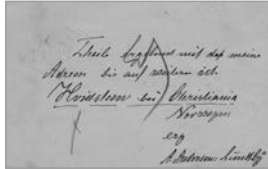 Theile Ergebenst mit daß meine
Adresse bis auf weiteres ist
Hvidsteen bei Christiania
Norwegen
erg